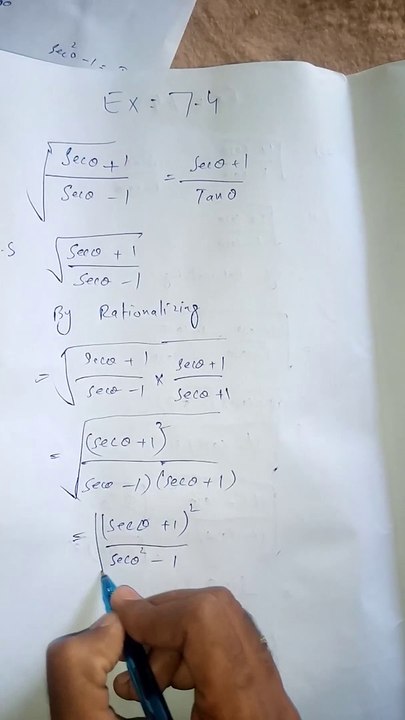 sec²θ - 1 =
Ex = 7.4
√((secθ + 1)/(secθ - 1)) = (secθ + 1)/(Tanθ)
.S √((secθ + 1)/(secθ - 1))
By Rationalizing
= √((secθ + 1)/(secθ - 1) × (secθ + 1)/(secθ + 1))
= √((secθ + 1)²/(secθ - 1)(secθ + 1))
= √((secθ + 1)²/(secθ² - 1))